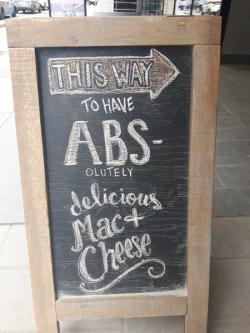 THIS WAY
TO HAVE
ABS-
OLUTELY
delicious
Mac +
Cheese